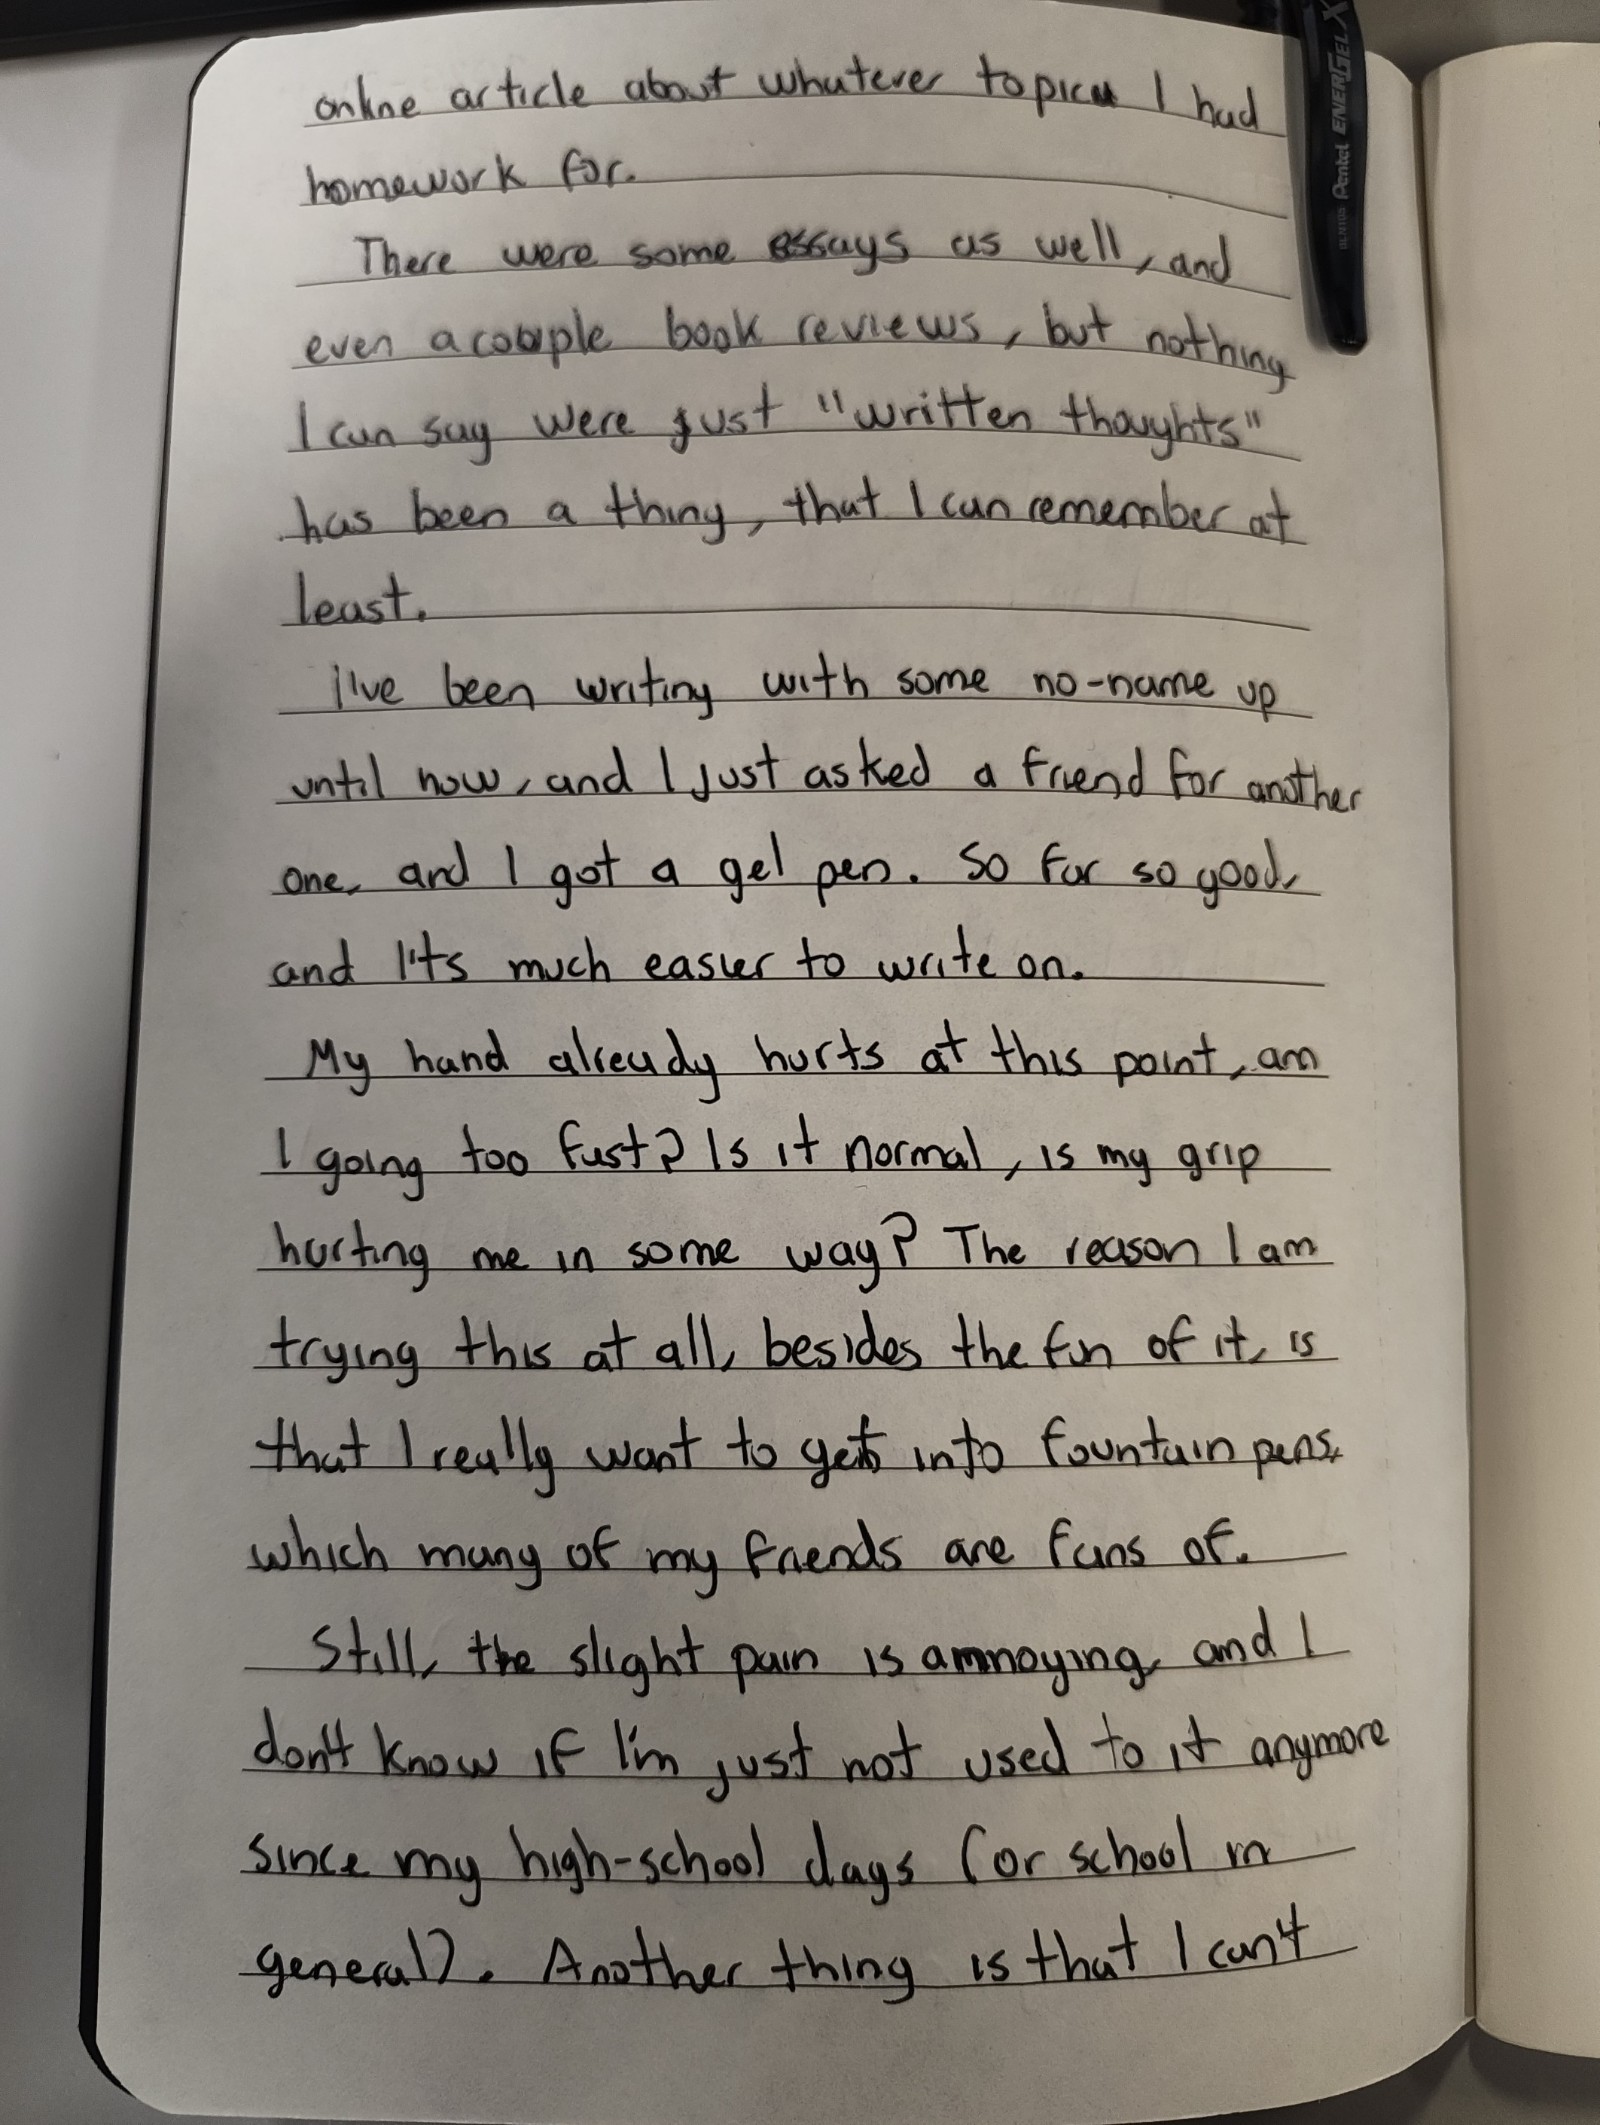 online article about whatever topics I had
homework for.
There were some essays as well, and
even a couple book reviews, but nothing
I can say were just "written thoughts"
has been a thing, that I can remember at
least.
I've been writing with some no-name up
until now, and I just asked a friend for another
one, and I got a gel pen. So far so good,
and It's much easier to write on.
My hand already hurts at this point, am
I going too fast? Is it normal, is my grip
hurting me in some way? The reason I am
trying this at all, besides the fun of it, is
that I really want to get into fountain pens,
which many of my friends are fans of.
Still, the slight pain is amnoying, and I
don't know if I'm just not used to it anymore
since my high-school days (or school in
general). Another thing is that I can't
BLN105 Pentel ENERGEL X